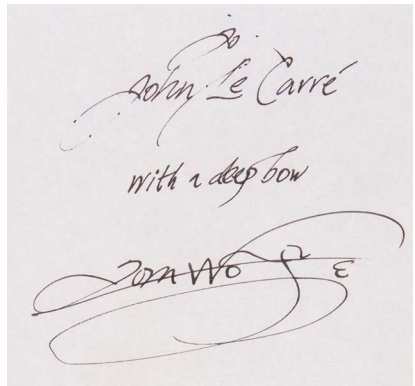 to
John Le Carré
with a deep bow
Tom Wolfe